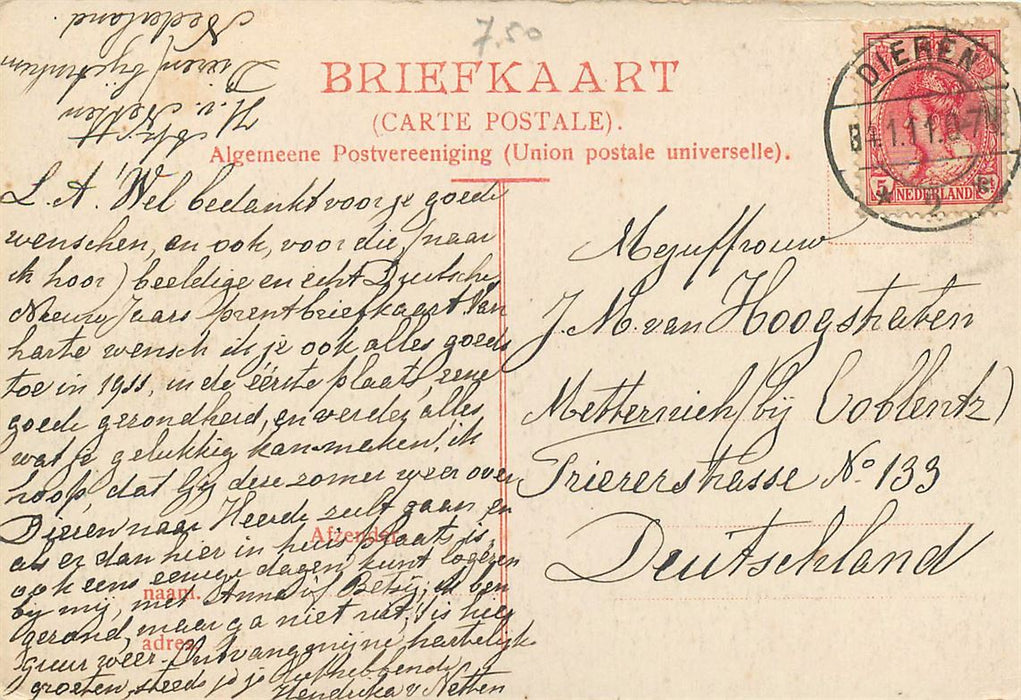 7.50
BRIEFKAART
(CARTE POSTALE).
Algemeene Postvereeniging (Union postale universelle).
DIEREN
5 NEDERLAND
H. v. Netten
Dieren/bij Arnhem
Nederland.
L. A! Wel bedankt voor je goede
wenschen, en ook, voor die, (naar
ik hoor) beeldige en echt Duitsche
Nieuw Jaars prentbriefkaart. Van
harte wensch ik je ook alles goeds
toe in 1911, in de éérste plaats, eene
goede gezondheid, en verder alles,
wat je gelukkig kan maken! ik
hoop, dat gij deze zomer weer over
Dieren naar Heerde zult gaan, en
als er dan hier in huis plaats is,
ook eens eenige dagen, kunt logeren
bij mij, met Anna of Betsy; ik ben
gezond, maar ga niet uit, 't is hier
guur weer. Ontvang mijne hartelijke
groeten, steeds je je liefhebbende
Hendrika v. Netten
Afzender
naam.
adres
Mejuffrouw
J. M. van Hoogstraten
Metternich (bij Coblentz)
Triererstrasse No 133
Deutschland